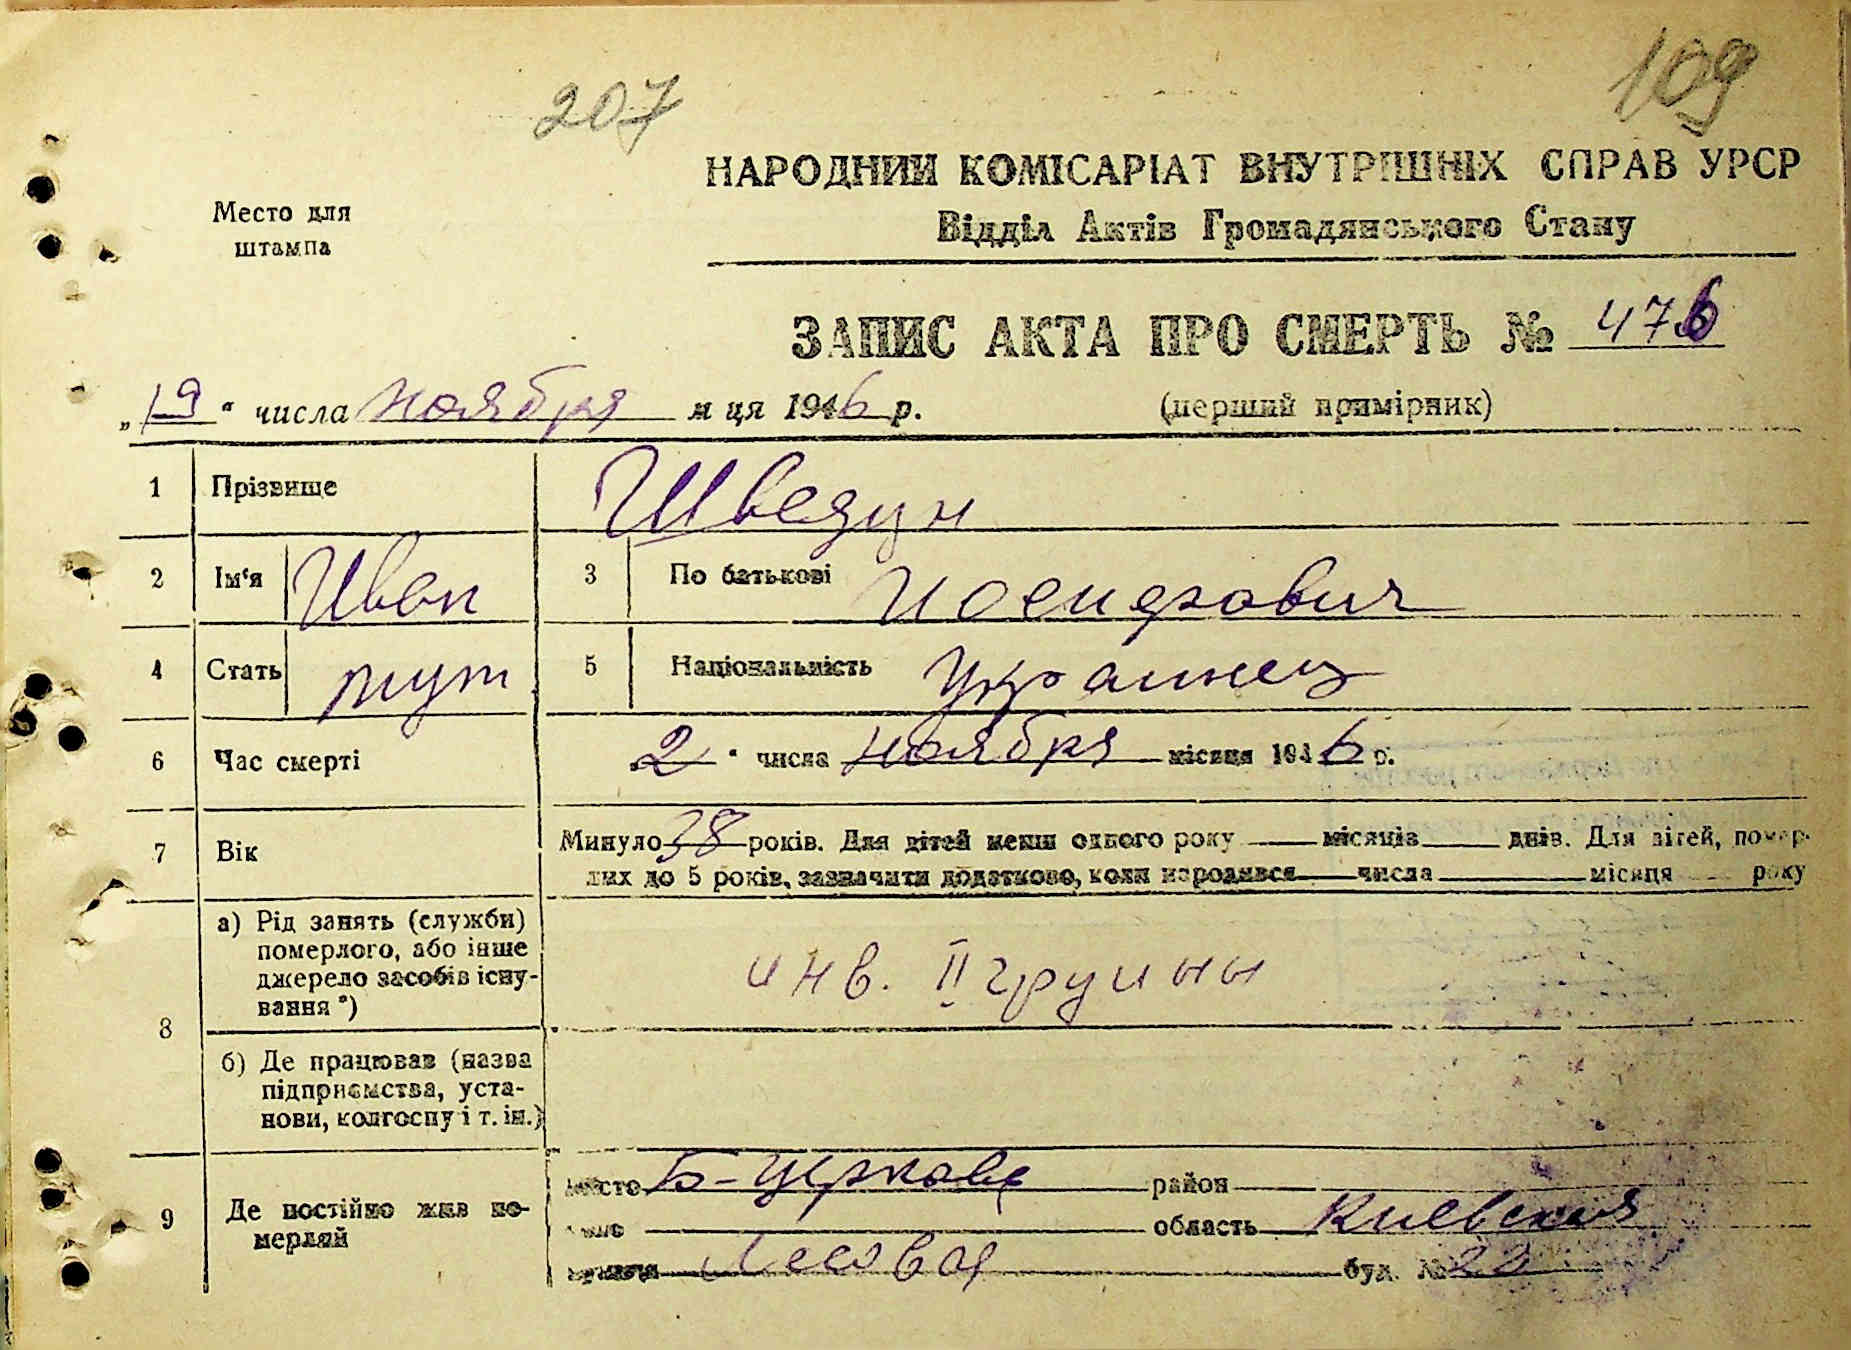 207
109
НАРОДНИЙ КОМІСАРІАТ ВНУТРІШНІХ СПРАВ УРСР
Відділ Актів Громадянського Стану
Место для
штампа
ЗАПИС АКТА ПРО СМЕРТЬ № 476
„19“ числа ноября м ця 1946 р. (перший примірник)
1 Прізвище Шведун
2 Ім'я Иван 3 По батькові Иосифович
4 Стать муж 5 Національність Украинец
6 Час смерті 2 “ числа ноября місяця 1946 р.
7 Вік Минуло 38 років. Для дітей менш одного року місяців днів. Для дітей, помер-
лих до 5 років, зазначити додатково, коли народився числа місяця року
8 а) Рід занять (служби)
померлого, або інше
джерело засобів існу-
вання *)
инв. II группы
б) Де працював (назва
підприємства, уста-
нови, колгоспу і т. ін.)
9 Де постійно жив по-
мерлий
місто Б-Церковь район
область Киевская
вулиця Лесовая буд. № 22